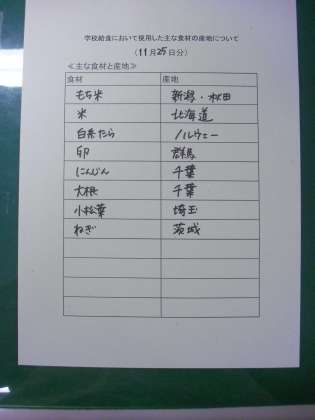 学校給食において使用した主な食材の産地について
(11月25日分)
≪主な食材と産地≫
食材 産地
もち米 新潟・秋田
米 北海道
白糸たら ノルウェー
卵 群馬
にんじん 千葉
大根 千葉
小松菜 埼玉
ねぎ 茨城